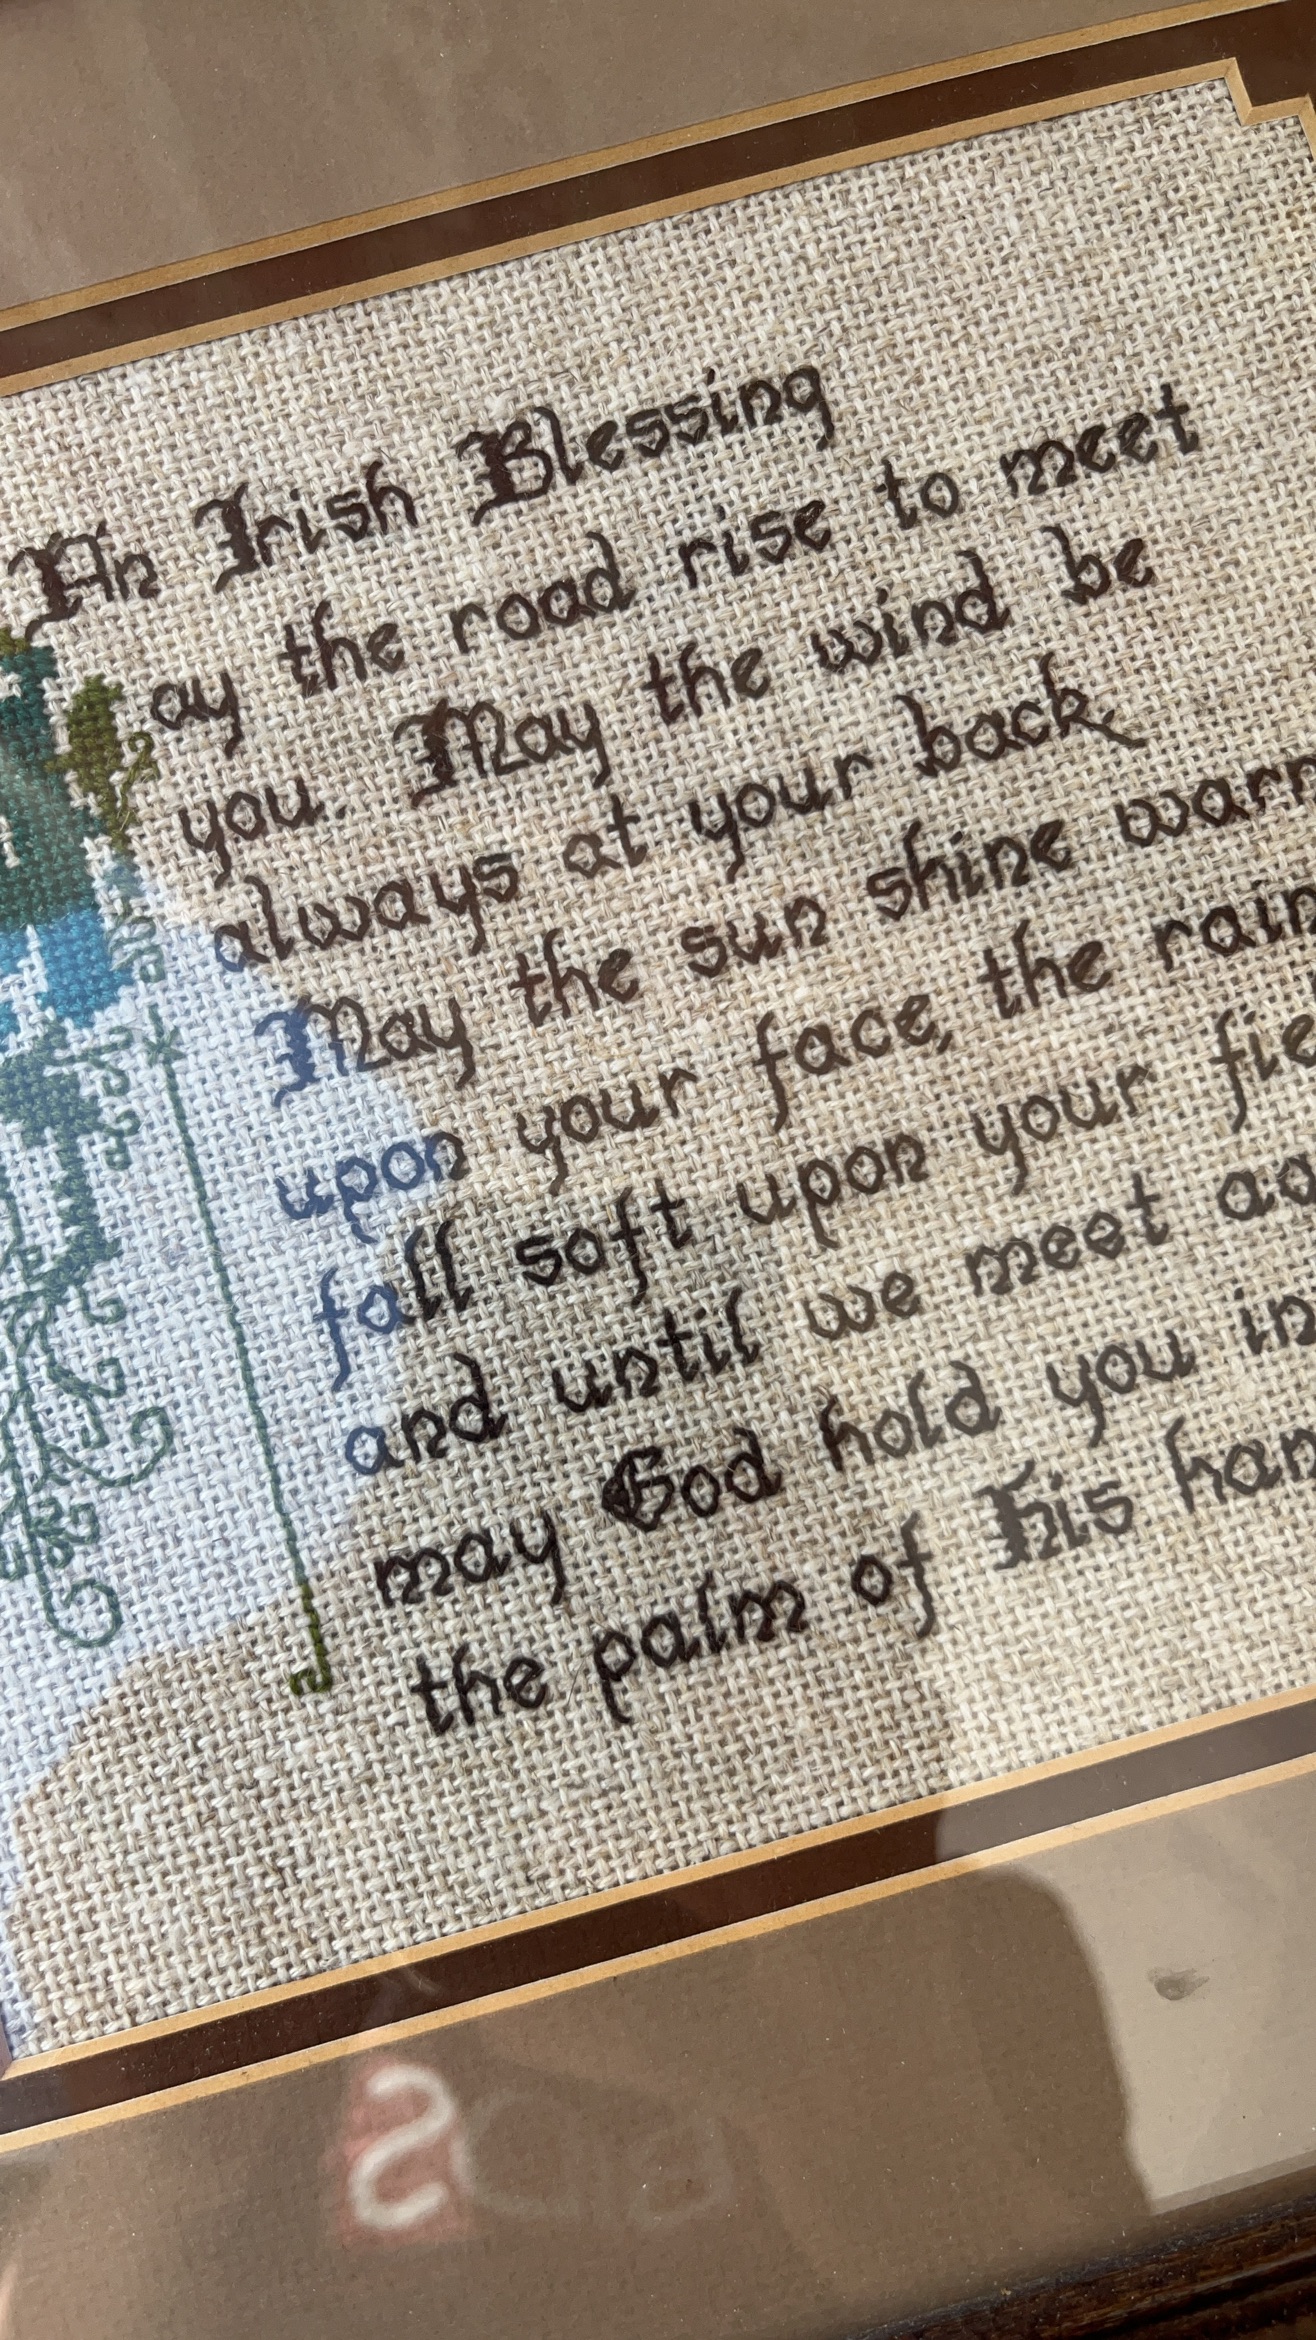 An Irish Blessing
ay the road rise to meet
you. May the wind be
always at your back.
May the sun shine warm
upon your face, the rain
fall soft upon your fie
and until we meet ag
may God hold you in
the palm of His han